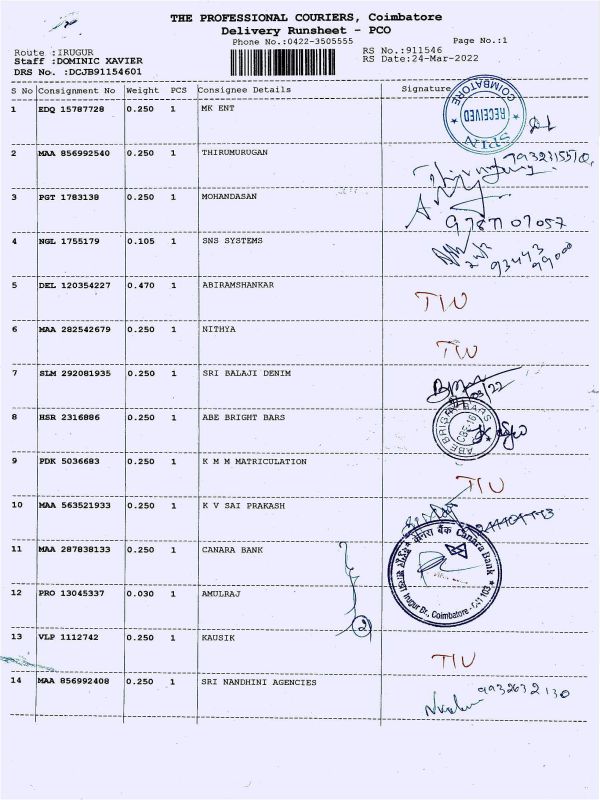 THE PROFESSIONAL COURIERS, Coimbatore
Delivery Runsheet - PCO
Phone No.:0422-3505555 Page No.:1
Route :IRUGUR RS No.:911546
Staff :DOMINIC XAVIER RS Date:24-Mar-2022
DRS No. :DCJB91154601
S No Consignment No Weight PCS Consignee Details Signature
1 EDQ 15787728 0.250 1 MK ENT
COIMBATORE RECEIVED SPIN
2 MAA 856992540 0.250 1 THIRUMURUGAN
3 PGT 1783138 0.250 1 MOHANDASAN
4 NGL 1755179 0.105 1 SNS SYSTEMS
93443
99000
5 DEL 120354227 0.470 1 ABIRAMSHANKAR TIU
6 MAA 282542679 0.250 1 NITHYA TIU
7 SLM 292081935 0.250 1 SRI BALAJI DENIM
8 HSR 2316886 0.250 1 ABE BRIGHT BARS
ABE BRIGHT BARS CBE-16
9 PDK 5036683 0.250 1 K M M MATRICULATION TIU
10 MAA 563521933 0.250 1 K V SAI PRAKASH
11 MAA 287838133 0.250 1 CANARA BANK
केनरा बैंक Canara Bank
Irugur Br., Coimbatore - 641 103
12 PRO 13045337 0.030 1 AMULRAJ
2
13 VLP 1112742 0.250 1 KAUSIK TIU
14 MAA 856992408 0.250 1 SRI NANDHINI AGENCIES 9932632130